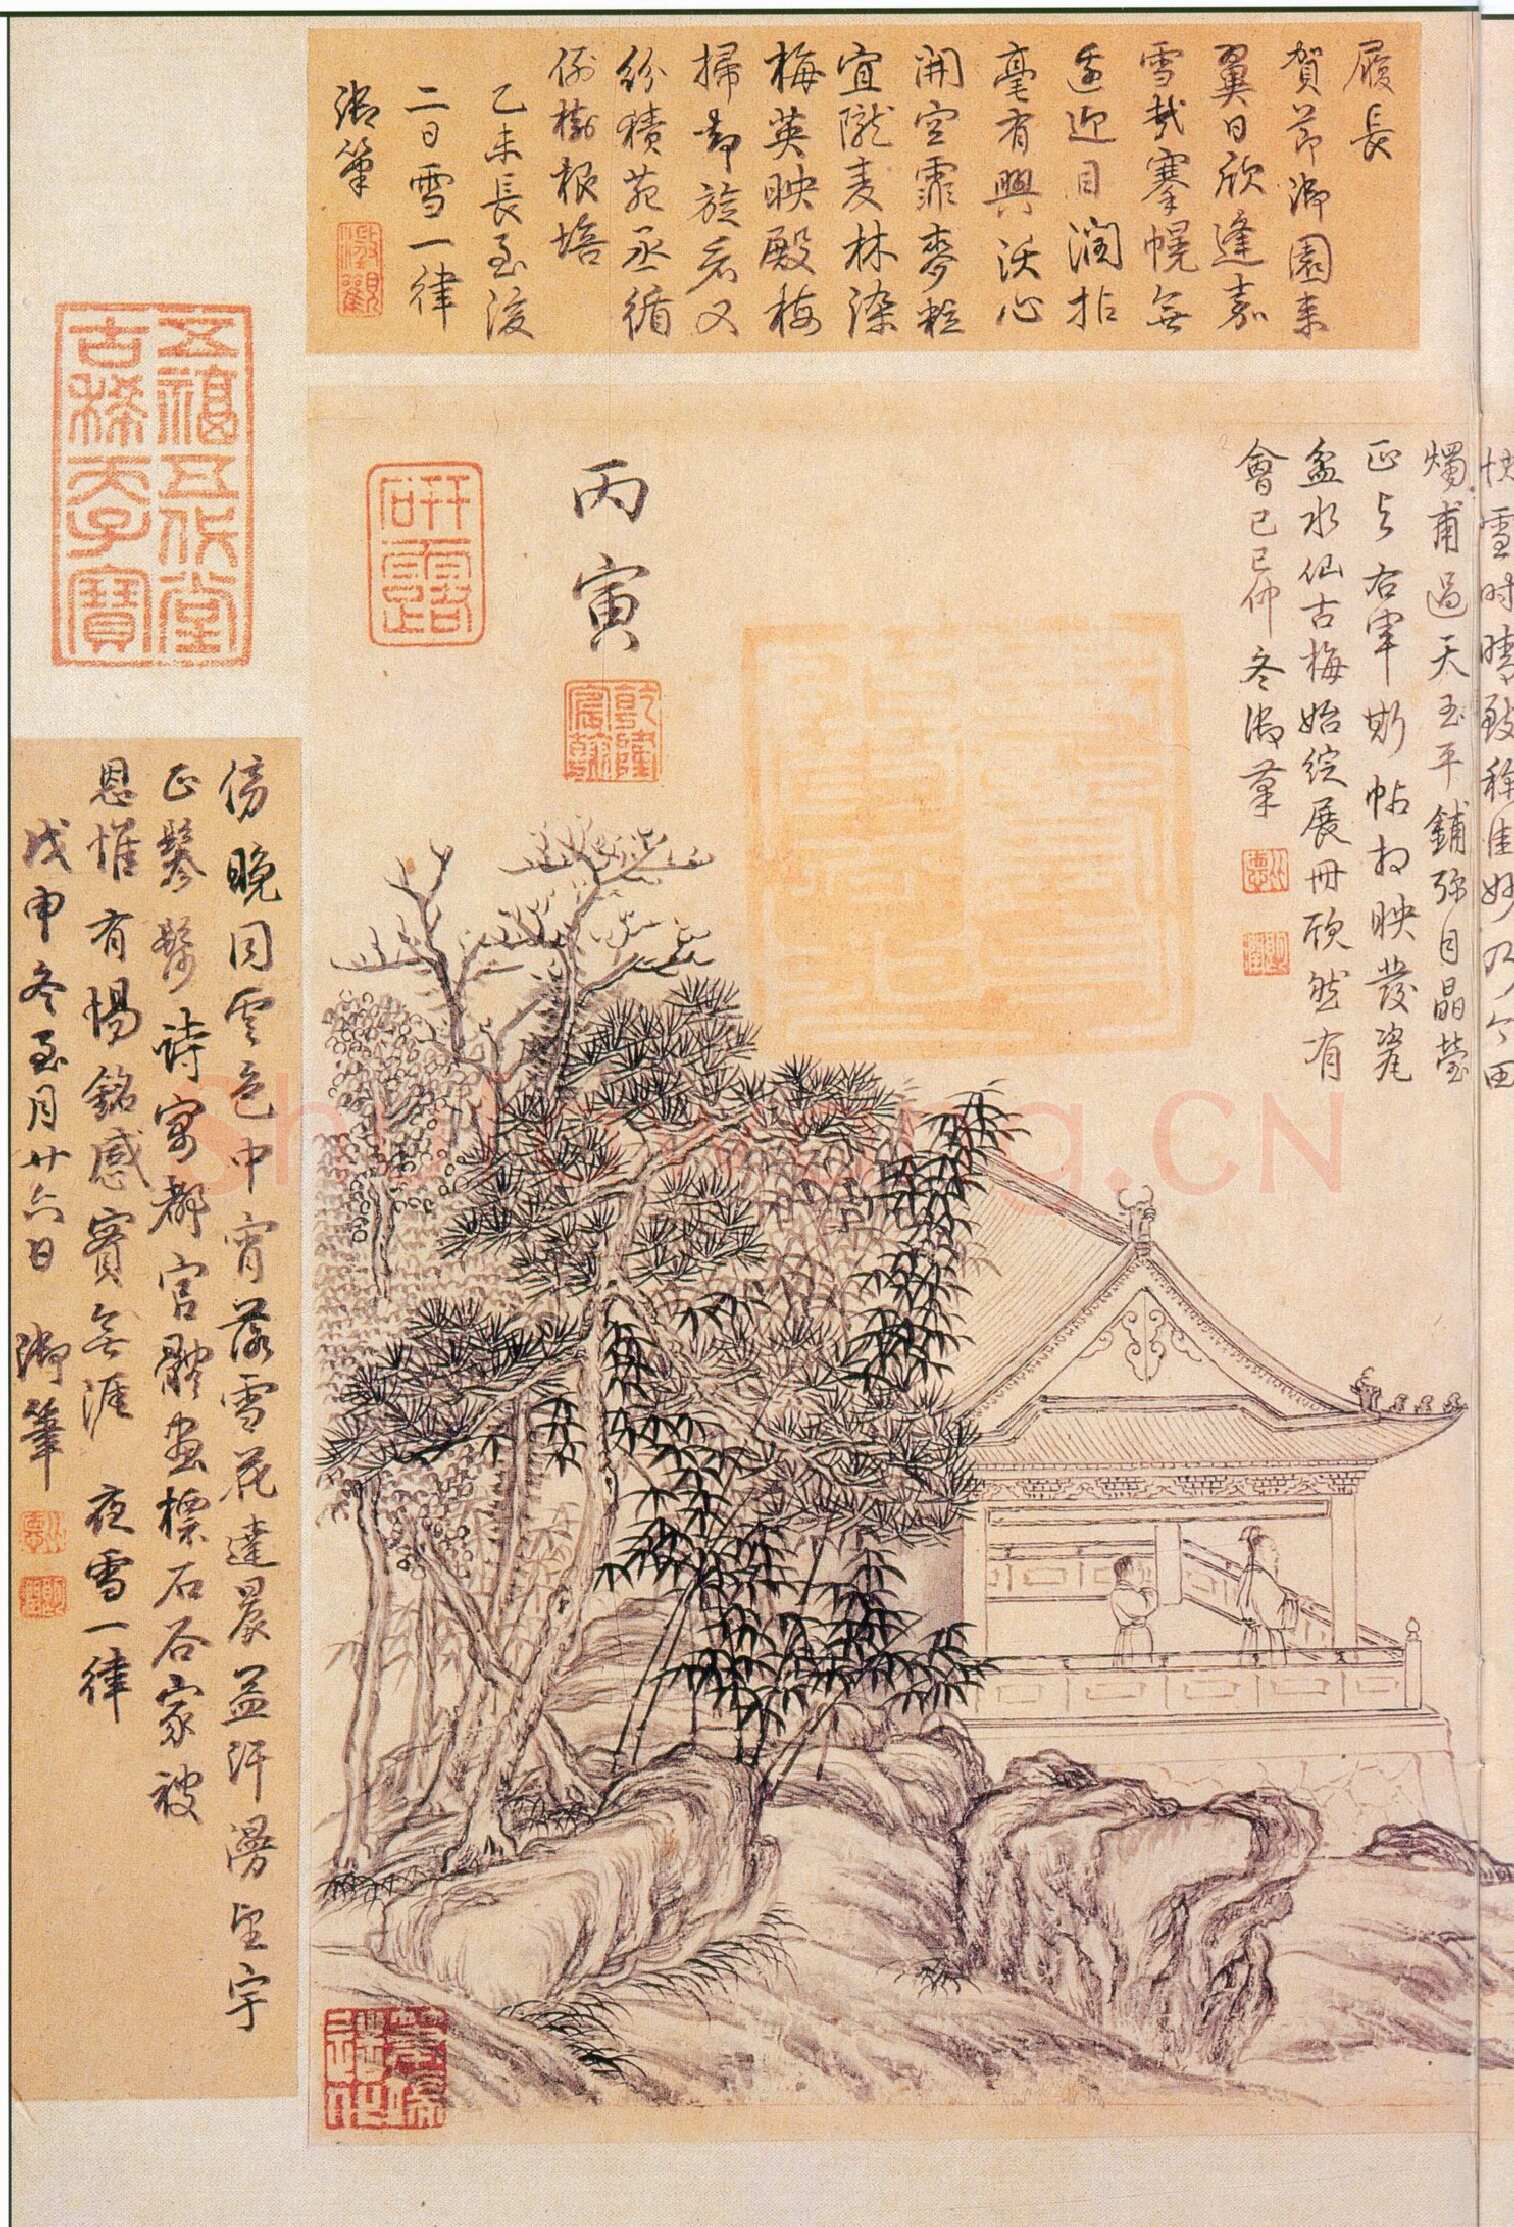 履長
賀節御園來
翼日欣逢嘉
雪哉搴幌無
遙迎目潤拈
毫有興沃心
開空霏麥粒
宜隴麦林染
梅英映殿梅
掃却旋看又
紛積苑丞循
例樹根培
乙未長至後
二日雪一律
御筆
快雪时晴致称佳妙乃今田
燭甫過天玉平鋪弥目晶瑩
正与右軍斯帖相映發瓷
盆水仙古梅始綻展冊欣然有
會己巳仲冬御筆
丙寅
乾隆宸翰
研露
五福五代堂
古稀天子寶
傍晚同雲色中宵落雪花達晨益汗漫望宇
正鬖髿詩寓都官體畫標石谷家被
恩惟有惕銘感實無涯 夜雪一律
戊申冬至月廿六日 御筆
ShuFaWang.CN